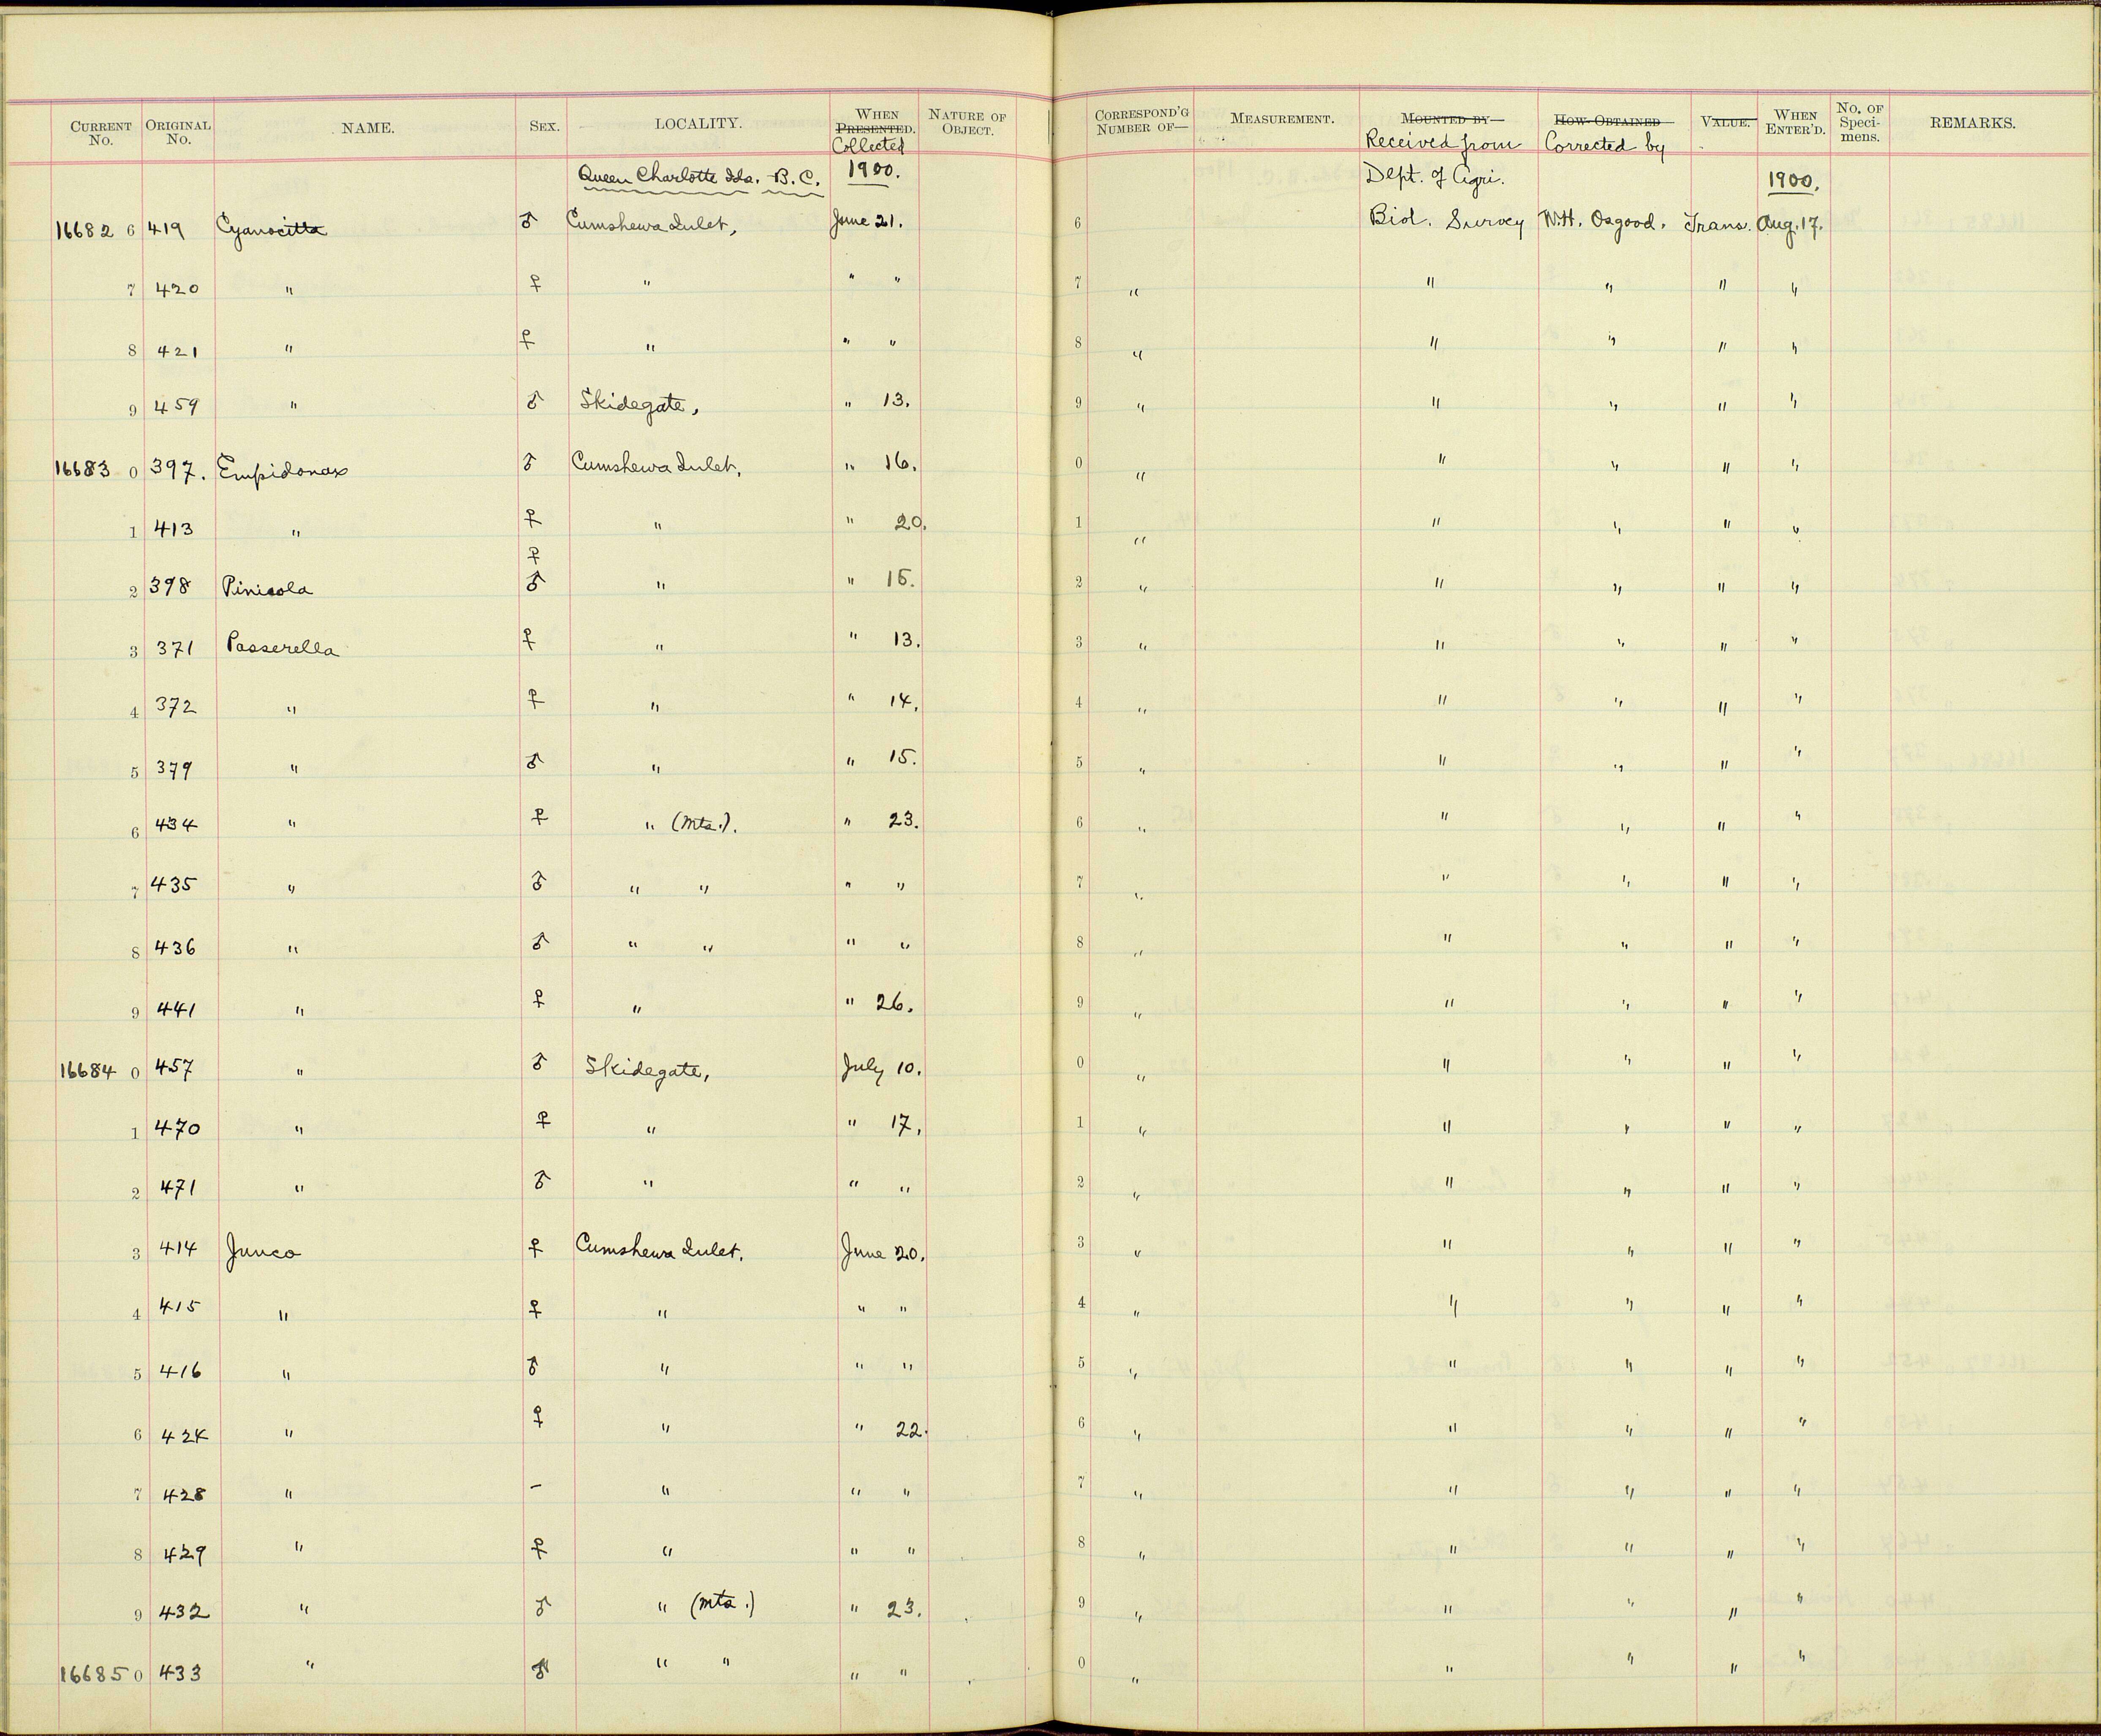 CURRENT No. ORIGINAL No. NAME. SEX. LOCALITY. WHEN PRESENTED. Collected NATURE OF OBJECT. CORRESPOND'G NUMBER OF— MEASUREMENT. MOUNTED BY— Received from HOW OBTAINED Corrected by VALUE. WHEN ENTER'D. No. OF Speci-mens. REMARKS.
Queen Charlotte Ids. B.C. 1900. Dept. of Agri. 1900.
16682 6 419 Cyanocitta ♂ Cumshewa Inlet, June 21. 6 Biol. Survey W.H. Osgood. Trans. Aug. 17.
7 420 " ♀ " " " 7 " " " " "
8 421 " ♀ " " " 8 " " " " "
9 459 " ♂ Skidegate, " 13. 9 " " " " "
16683 0 397. Empidonax ♂ Cumshewa Inlet, " 16. 0 " " " " "
1 413 " ♀ " " 20. 1 " " " " "
♀
2 398 Pinicola ♂ " " 15. 2 " " " " "
3 371 Passerella ♀ " " 13. 3 " " " " "
4 372 " ♀ " " 14. 4 " " " " "
5 379 " ♂ " " 15. 5 " " " " "
6 434 " ♀ " (Mts.). " 23. 6 " " " " "
7 435 " ♂ " " " " 7 " " " " "
8 436 " ♂ " " " " 8 " " " " "
9 441 " ♀ " " 26. 9 " " " " "
16684 0 457 " ♂ Skidegate, July 10. 0 " " " " "
1 470 " ♀ " " 17. 1 " " " " "
2 471 " ♂ " " " 2 " " " " "
3 414 Junco ♀ Cumshewa Inlet. June 20. 3 " " " " "
4 415 " ♀ " " " 4 " " " " "
5 416 " ♂ " " " 5 " " " " "
6 424 " ♀ " " 22. 6 " " " " "
7 428 " – " " " 7 " " " " "
8 429 " ♀ " " " 8 " " " " "
9 432 " ♂ " (Mts.) " 23. 9 " " " " "
16685 0 433 " ♂ " " " " 0 " " " " "